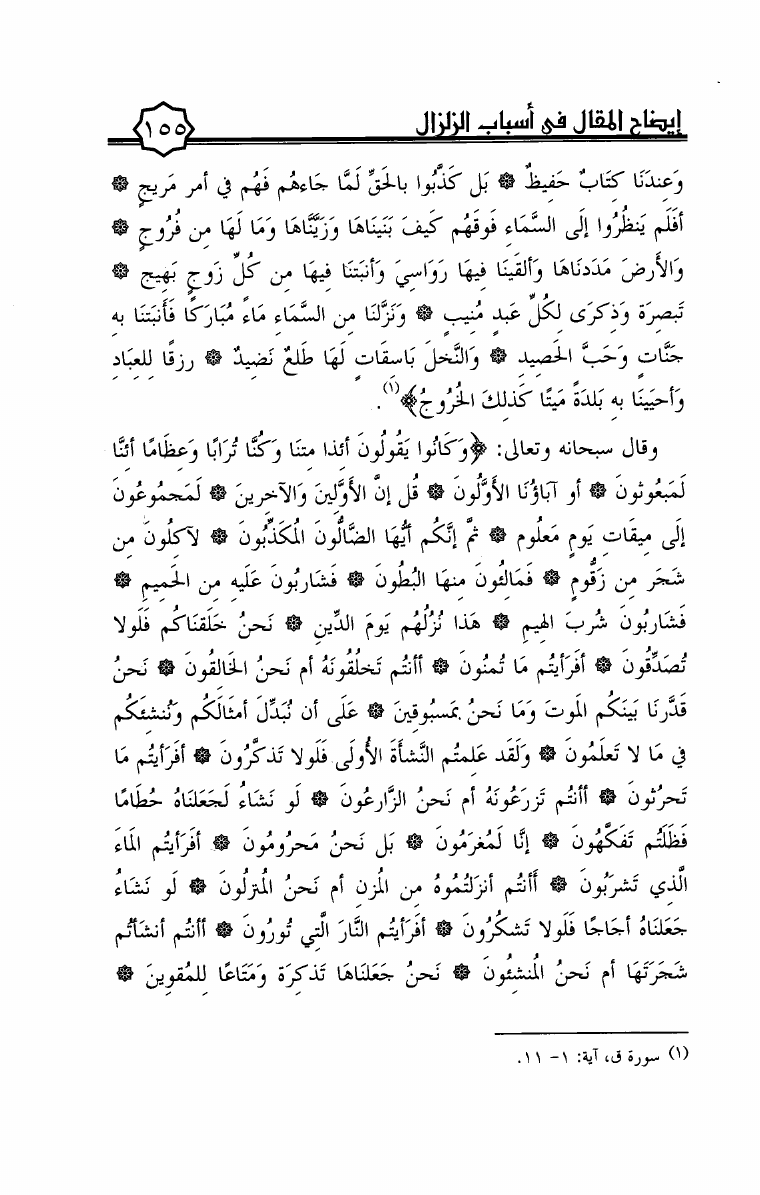 إيضاح المقال في أسباب الزلزال
١٥٥
وَعِندَنَا كِتَابٌ حَفِيظٌ ۞ بَل كَذَّبُوا بِالحَقِّ لَمَّا جَاءهُم فَهُم فِي أمرٍ مَرِيجٍ ۞
أفَلَم يَنظُرُوا إلَى السَّمَاءِ فَوقَهُم كَيفَ بَنَينَاهَا وَزَيَّنَّاهَا وَمَا لَهَا مِن فُرُوجٍ ۞
وَالأَرضَ مَدَدنَاهَا وَألقَينَا فِيهَا رَوَاسِيَ وَأنبَتنَا فِيهَا مِن كُلِّ زَوجٍ بَهِيجٍ ۞
تَبصِرَةً وَذِكرَى لِكُلِّ عَبدٍ مُنِيبٍ ۞ وَنَزَّلنَا مِن السَّمَاءِ مَاءً مُبَارَكًا فَأنبَتنَا بِهِ
جَنَّاتٍ وَحَبَّ الحَصِيدِ ۞ وَالنَّخلَ بَاسِقَاتٍ لَهَا طَلعٌ نَضِيدٌ ۞ رِزقًا لِلعِبَادِ
وَأحيَينَا بِهِ بَلدَةً مَيتًا كَذَلِكَ الخُرُوجُ﴾(١).
وقال سبحانه وتعالى: ﴿وَكَانُوا يَقُولُونَ أئِذا مِتنَا وَكُنَّا تُرَابًا وَعِظَامًا أئِنَّا
لَمَبعُوثونَ ۞ أو آبَاؤُنَا الأوَّلُونَ ۞ قُل إنَّ الأوَّلِينَ وَالآخِرِينَ ۞ لَمَجمُوعُونَ
إلَى مِيقَاتِ يَومٍ مَعلُومٍ ۞ ثمَّ إنَّكُم أيُّهَا الضَّالُّونَ المُكَذِّبُونَ ۞ لآكِلُونَ مِن
شَجَرٍ مِن زَقُّومٍ ۞ فَمَالِئُونَ مِنهَا البُطُونَ ۞ فَشَارِبُونَ عَلَيهِ مِن الحَمِيمِ ۞
فَشَارِبُونَ شُربَ الهِيمِ ۞ هَذا نُزُلُهُم يَومَ الدِّينِ ۞ نَحنُ خَلَقنَاكُم فَلَولا
تُصَدِّقُونَ ۞ أفَرَأيتُم مَا تُمنُونَ ۞ أأنتُم تَخلُقُونَهُ أم نَحنُ الخَالِقُونَ ۞ نَحنُ
قَدَّرنَا بَينَكُم المَوتَ وَمَا نَحنُ بِمَسبُوقِينَ ۞ عَلَى أن نُبَدِّلَ أمثَالَكُم وَنُنشِئَكُم
فِي مَا لا تَعلَمُونَ ۞ وَلَقَد عَلِمتُم النَّشأَةَ الأُولَى فَلَولا تَذكَّرُونَ ۞ أفَرَأيتُم مَا
تَحرُثونَ ۞ أأنتُم تَزرَعُونَهُ أم نَحنُ الزَّارِعُونَ ۞ لَو نَشَاءُ لَجَعَلنَاهُ حُطَامًا
فَظَلَتُم تَفَكَّهُونَ ۞ إنَّا لَمُغرَمُونَ ۞ بَل نَحنُ مَحرُومُونَ ۞ أفَرَأيتُم المَاءَ
الَّذِي تَشرَبُونَ ۞ أَأنتُم أنزَلتُمُوهُ مِن المُزنِ أم نَحنُ المُنزِلُونَ ۞ لَو نَشَاءُ
جَعَلنَاهُ أجَاجًا فَلَولا تَشكُرُونَ ۞ أفَرَأيتُم النَّارَ الَّتِي تُورُونَ ۞ أأنتُم أنشَأتُم
شَجَرَتَهَا أم نَحنُ المُنشِئُونَ ۞ نَحنُ جَعَلنَاهَا تَذكِرَة وَمَتَاعًا لِلمُقوِينَ ۞
(١) سورة ق، آية: ١- ١١.